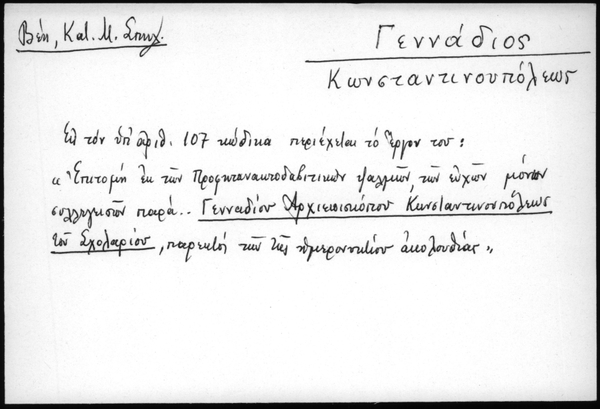 Βέη, Κατ. Μ. Σπηλ.
Γεννάδιος
Κωνσταντινουπόλεως
Εἰς τὸν ὑπ' ἀριθ. 107 κώδικα περιέχεται τὸ ἔργον του:
«Ἐπιτομὴ ἐκ τῶν Προφητανακτοδαβιτικῶν ψαλμῶν, τῶν εὐχῶν μόνων
συλλεγεισῶν παρὰ.. Γενναδίου Ἀρχιεπισκόπου Κωνσταντινουπόλεως
τοῦ Σχολαρίου, παρεκτὸς τῶν τῆς ἡμερονυκτίου ἀκολουθίας»